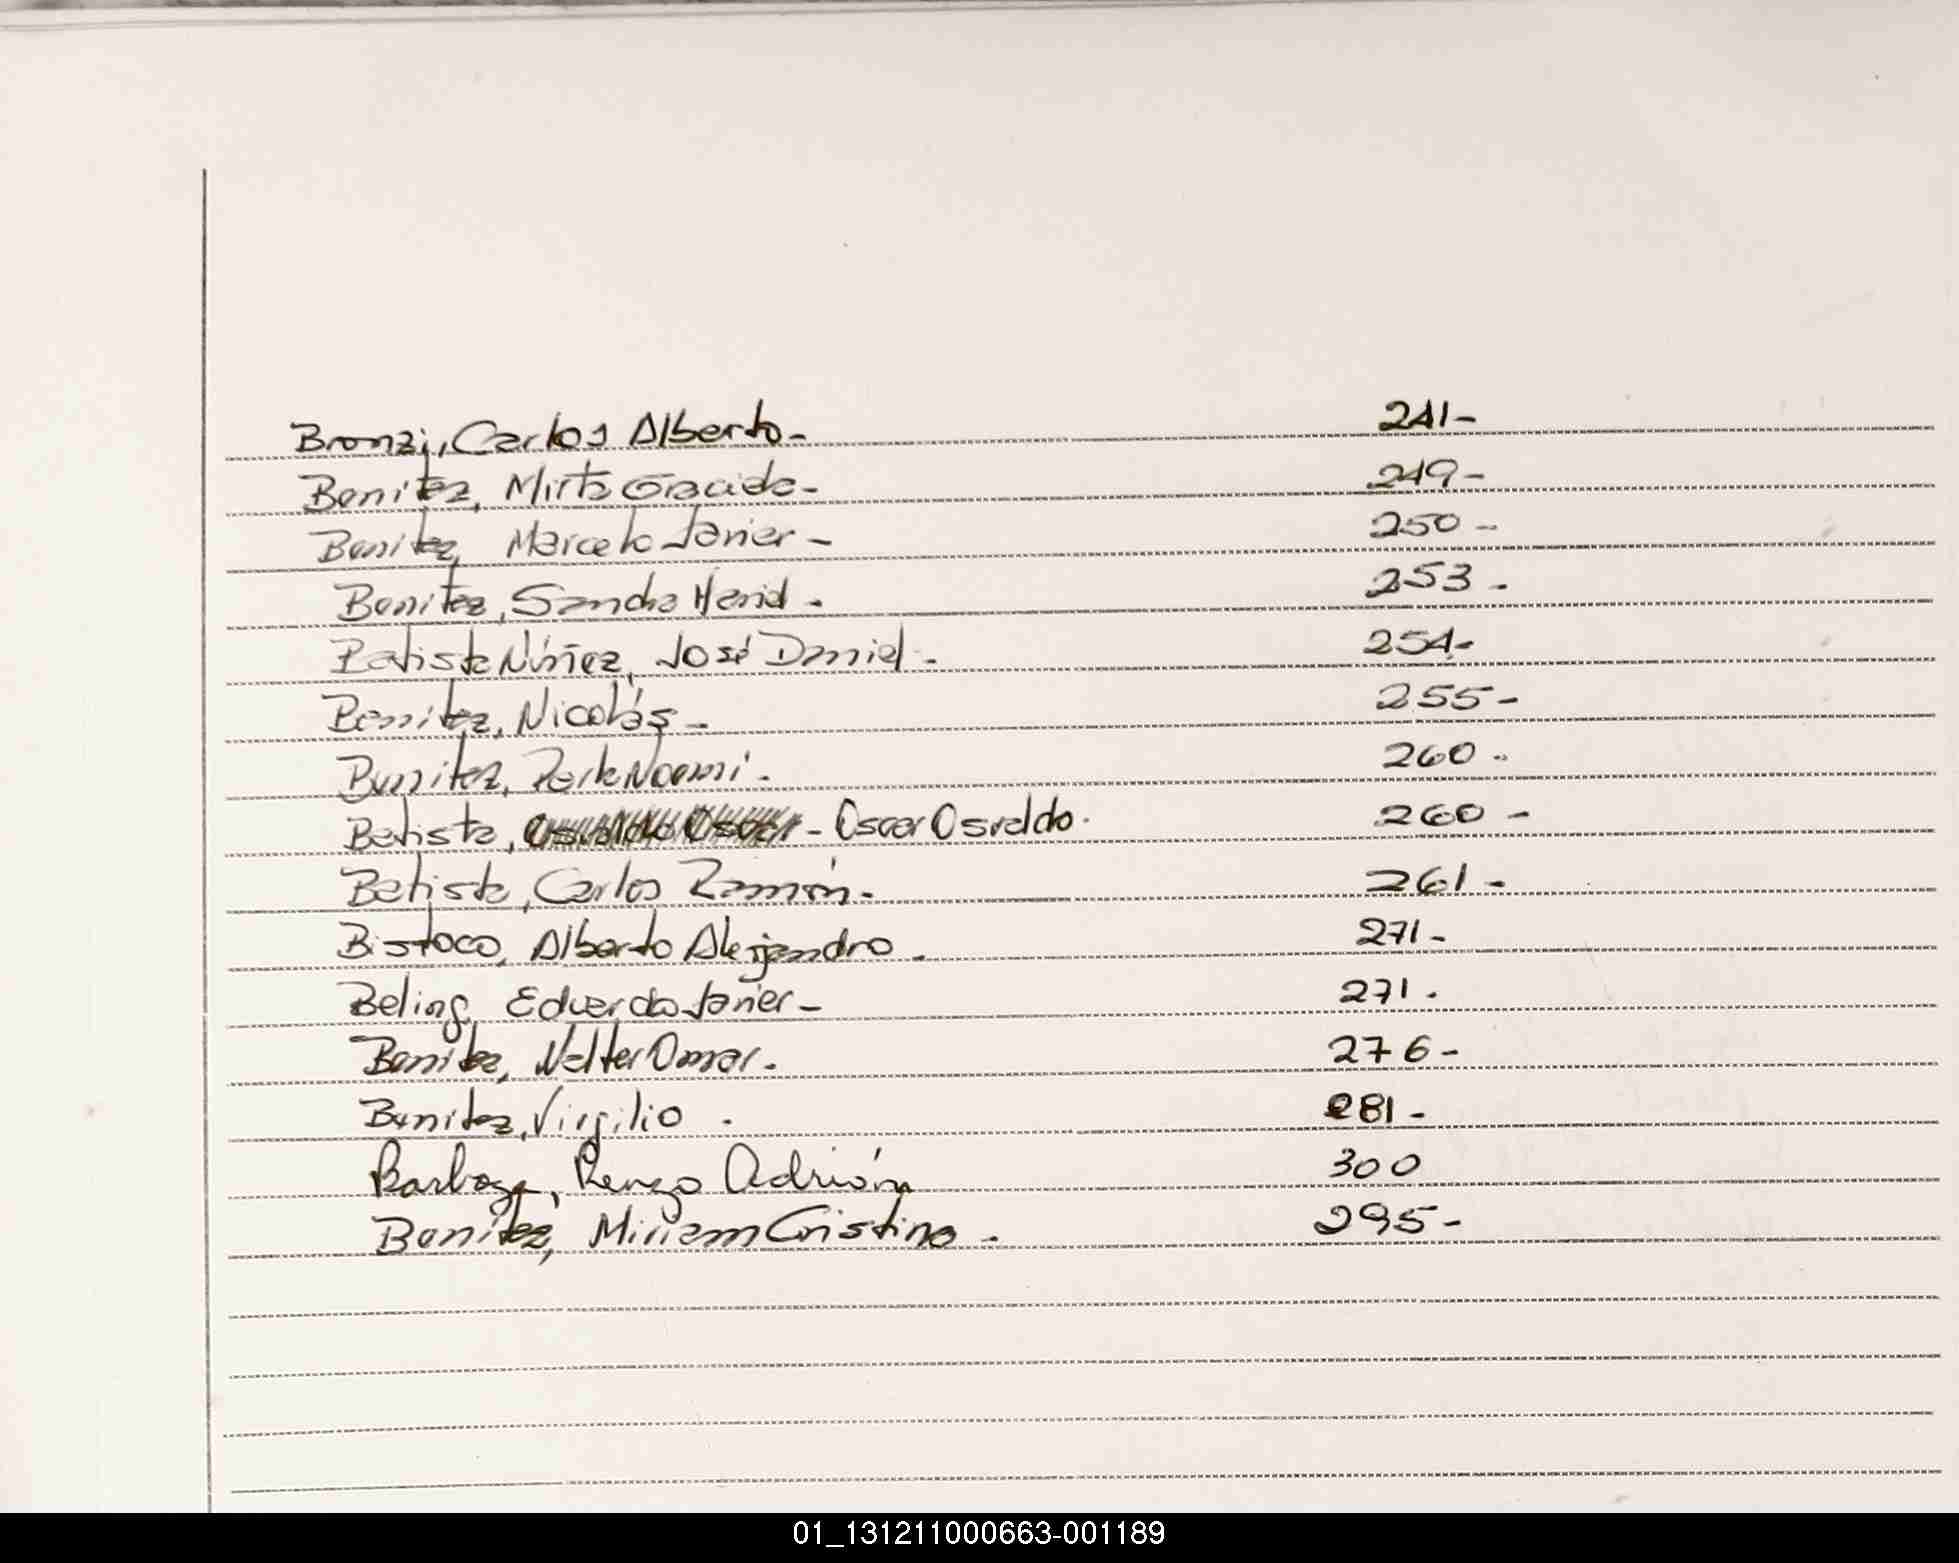 Bronzi, Carlos Alberto - 241-
Benitez, Mirta Graciela - 249-
Benitez, Marcelo Javier - 250-
Benitez, Sandra 253.
Batista Núñez, José Daniel - 254-
Benitez, Nicolás - 255-
Benitez, Noemi. 260.
Batista, Osvaldo Oscar - Oscar Osvaldo. 260-
Batista, Carlos Ramón. 261-
Bistoco, Alberto Alejandro. 271-
Beling, Eduardo Javier - 271.
Benitez, Walter Omar. 276-
Benitez, Virgilio. 281-
Barboza, Renzo Adrián 300
Benitez, Miriam Cristina. 295-
01_131211000663-001189